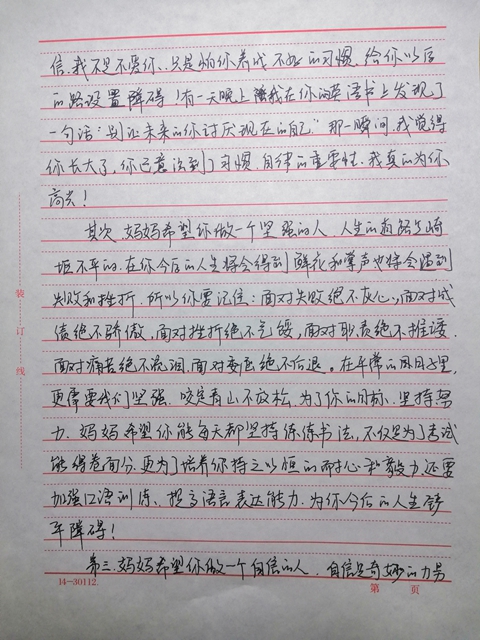 信.我不是不爱你、只是怕你养成不好的习惯.给你以后
的路设置障碍!有一天晚上我在你的英语书上发现了
一句话:别让未来的你讨厌现在的自己"那一瞬间.我觉得
你长大了,你已意识到了习惯.自律的重要性.我真的为你
高兴!
其次.妈妈希望你做一个坚强的人.人生的道路多崎
岖不平的.在你今后的人生将会得到鲜花和掌声也将会遇到
失败和挫折.所以你要记住:面对失败绝不灰心,面对成
绩绝不骄傲,面对挫折绝不气馁,面对职责绝不推诿.
面对痛苦绝不流泪.面对委屈绝不后退。在平常的日子里.
更需要我们坚强.咬定青山不放松.为了你的目标.坚持努
力.妈妈希望你能每天都坚持练练书法,不仅是为了考试
能得卷面分.更为了培养你持之以恒的耐心和毅力.还要
加强口语训练、提高语言表达能力.为你今后的人生铲
平障碍!
第三.妈妈希望你做一个自信的人.自信是奇妙的力量
装
订
线
14-30112
第 页